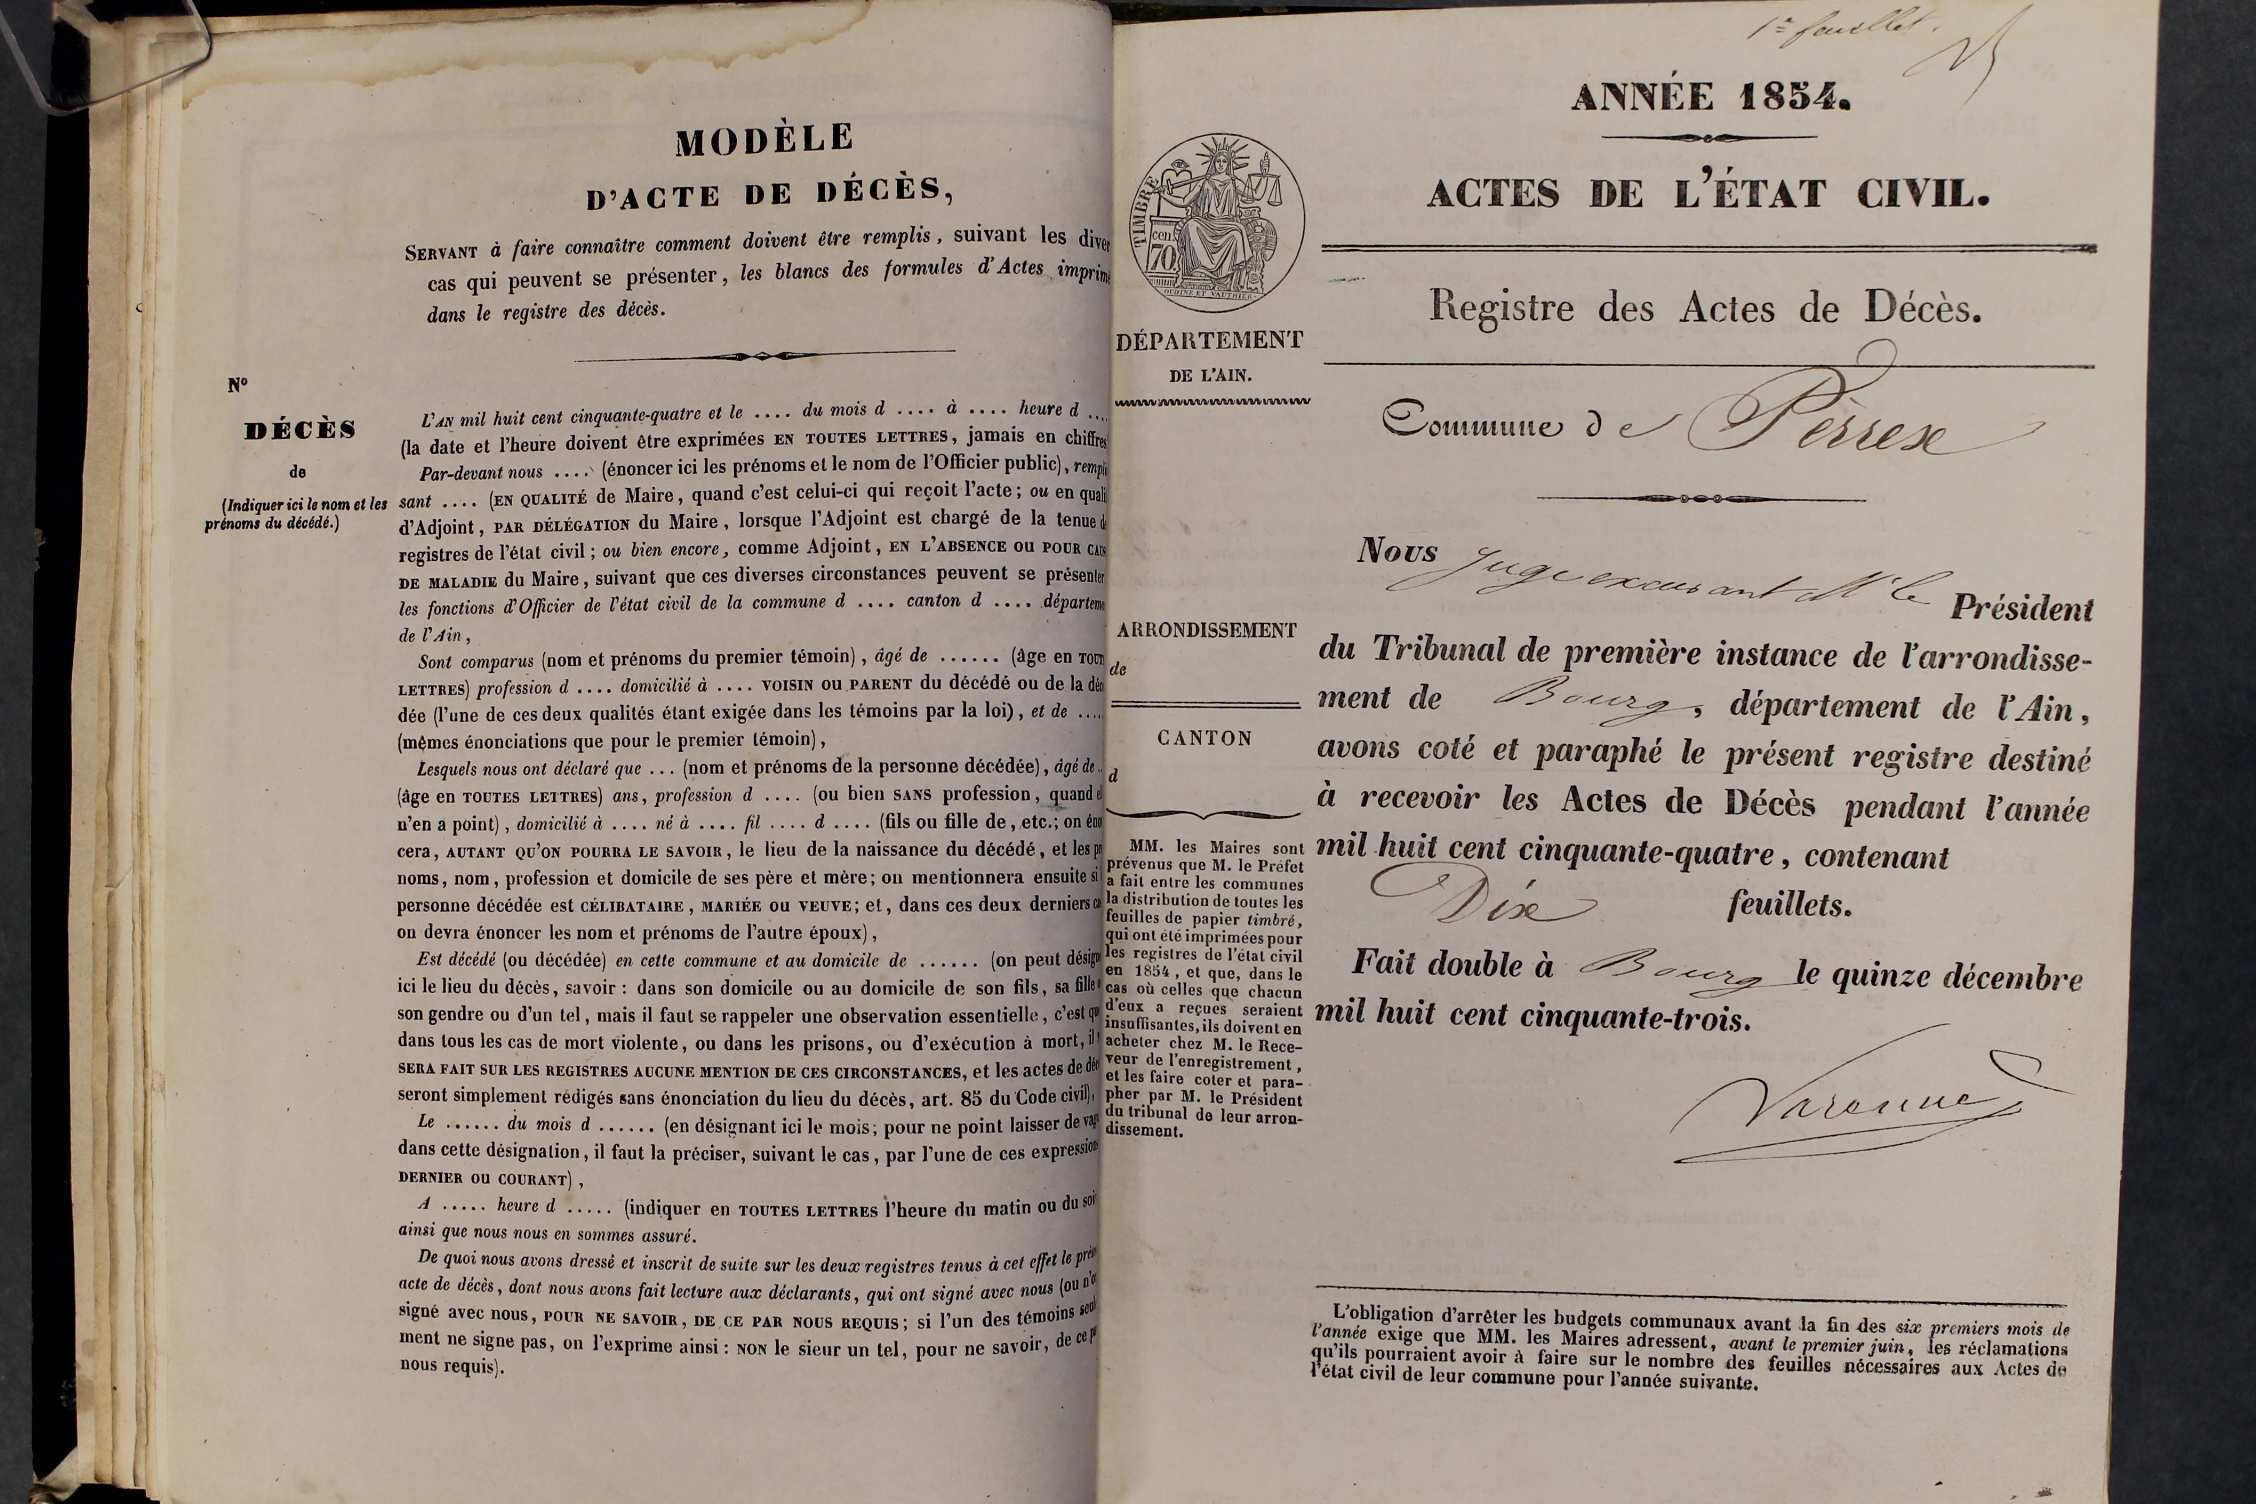 MODÈLE
D'ACTE DE DÉCÈS,
SERVANT à faire connaître comment doivent être remplis, suivant les diver
cas qui peuvent se présenter, les blancs des formules d'Actes imprimé
dans le registre des décès.
N°
DÉCÈS
de
(Indiquer ici le nom et les
prénoms du décédé.)
L'AN mil huit cent cinquante-quatre et le .... du mois d .... à .... heure d ....
(la date et l'heure doivent être exprimées EN TOUTES LETTRES, jamais en chiffres
Par-devant nous .... (énoncer ici les prénoms et le nom de l'Officier public), rempli
sant .... (EN QUALITÉ de Maire, quand c'est celui-ci qui reçoit l'acte; ou en quali
d'Adjoint, PAR DÉLÉGATION du Maire, lorsque l'Adjoint est chargé de la tenue d
registres de l'état civil; ou bien encore, comme Adjoint, EN L'ABSENCE OU POUR CAUS
DE MALADIE du Maire, suivant que ces diverses circonstances peuvent se présenter
les fonctions d'Officier de l'état civil de la commune d .... canton d .... départeme
de l'Ain,
Sont comparus (nom et prénoms du premier témoin), âgé de ...... (âge en TOUT
LETTRES) profession d .... domicilié à .... VOISIN OU PARENT du décédé ou de la déc
dée (l'une de ces deux qualités étant exigée dans les témoins par la loi), et de ....
(mêmes énonciations que pour le premier témoin),
Lesquels nous ont déclaré que ... (nom et prénoms de la personne décédée), âgé de ..
(âge en TOUTES LETTRES) ans, profession d .... (ou bien SANS profession, quand e
n'en a point), domicilié à .... né à .... fil .... d .... (fils ou fille de, etc.; on éno
cera, AUTANT QU'ON POURRA LE SAVOIR, le lieu de la naissance du décédé, et les pr
noms, nom, profession et domicile de ses père et mère; on mentionnera ensuite si
personne décédée est CÉLIBATAIRE, MARIÉE OU VEUVE; et, dans ces deux derniers ca
on devra énoncer les nom et prénoms de l'autre époux),
Est décédé (ou décédée) en cette commune et au domicile de ...... (on peut désign
ici le lieu du décès, savoir: dans son domicile ou au domicile de son fils, sa fille
son gendre ou d'un tel, mais il faut se rappeler une observation essentielle, c'est qu
dans tous les cas de mort violente, ou dans les prisons, ou d'exécution à mort, il
SERA FAIT SUR LES REGISTRES AUCUNE MENTION DE CES CIRCONSTANCES, et les actes de déc
seront simplement rédigés sans énonciation du lieu du décès, art. 85 du Code civil),
Le ...... du mois d ...... (en désignant ici le mois; pour ne point laisser de vag
dans cette désignation, il faut la préciser, suivant le cas, par l'une de ces expressions
DERNIER OU COURANT),
A ..... heure d ..... (indiquer en TOUTES LETTRES l'heure du matin ou du soir
ainsi que nous nous en sommes assuré.
De quoi nous avons dressé et inscrit de suite sur les deux registres tenus à cet effet le prés
acte de décès, dont nous avons fait lecture aux déclarants, qui ont signé avec nous (ou n'o
signé avec nous, POUR NE SAVOIR, DE CE PAR NOUS REQUIS; si l'un des témoins seul
ment ne signe pas, on l'exprime ainsi: NON le sieur un tel, pour ne savoir, de ce p
nous requis).
1er feuillet.
TIMBRE
cen.
70
OUDINÉ ET VAUTHIER
DÉPARTEMENT
DE L'AIN.
ARRONDISSEMENT
de
CANTON
d
MM. les Maires sont
prévenus que M. le Préfet
a fait entre les communes
la distribution de toutes les
feuilles de papier timbré,
qui ont été imprimées pour
les registres de l'état civil
en 1854, et que, dans le
cas où celles que chacun
d'eux a reçues seraient
insuffisantes, ils doivent en
acheter chez M. le Rece-
veur de l'enregistrement,
et les faire coter et para-
pher par M. le Président
du tribunal de leur arron-
dissement.
ANNÉE 1854.
ACTES DE L'ÉTAT CIVIL.
Registre des Actes de Décès.
Commune de Perrex
Nous Juge excusant Mr le Président
du Tribunal de première instance de l'arrondisse-
ment de Bourg, département de l'Ain,
avons coté et paraphé le présent registre destiné
à recevoir les Actes de Décès pendant l'année
mil huit cent cinquante-quatre, contenant
Dix feuillets.
Fait double à Bourg le quinze décembre
mil huit cent cinquante-trois.
Varenne
L'obligation d'arrêter les budgets communaux avant la fin des six premiers mois de
l'année exige que MM. les Maires adressent, avant le premier juin, les réclamations
qu'ils pourraient avoir à faire sur le nombre des feuilles nécessaires aux Actes de
l'état civil de leur commune pour l'année suivante.